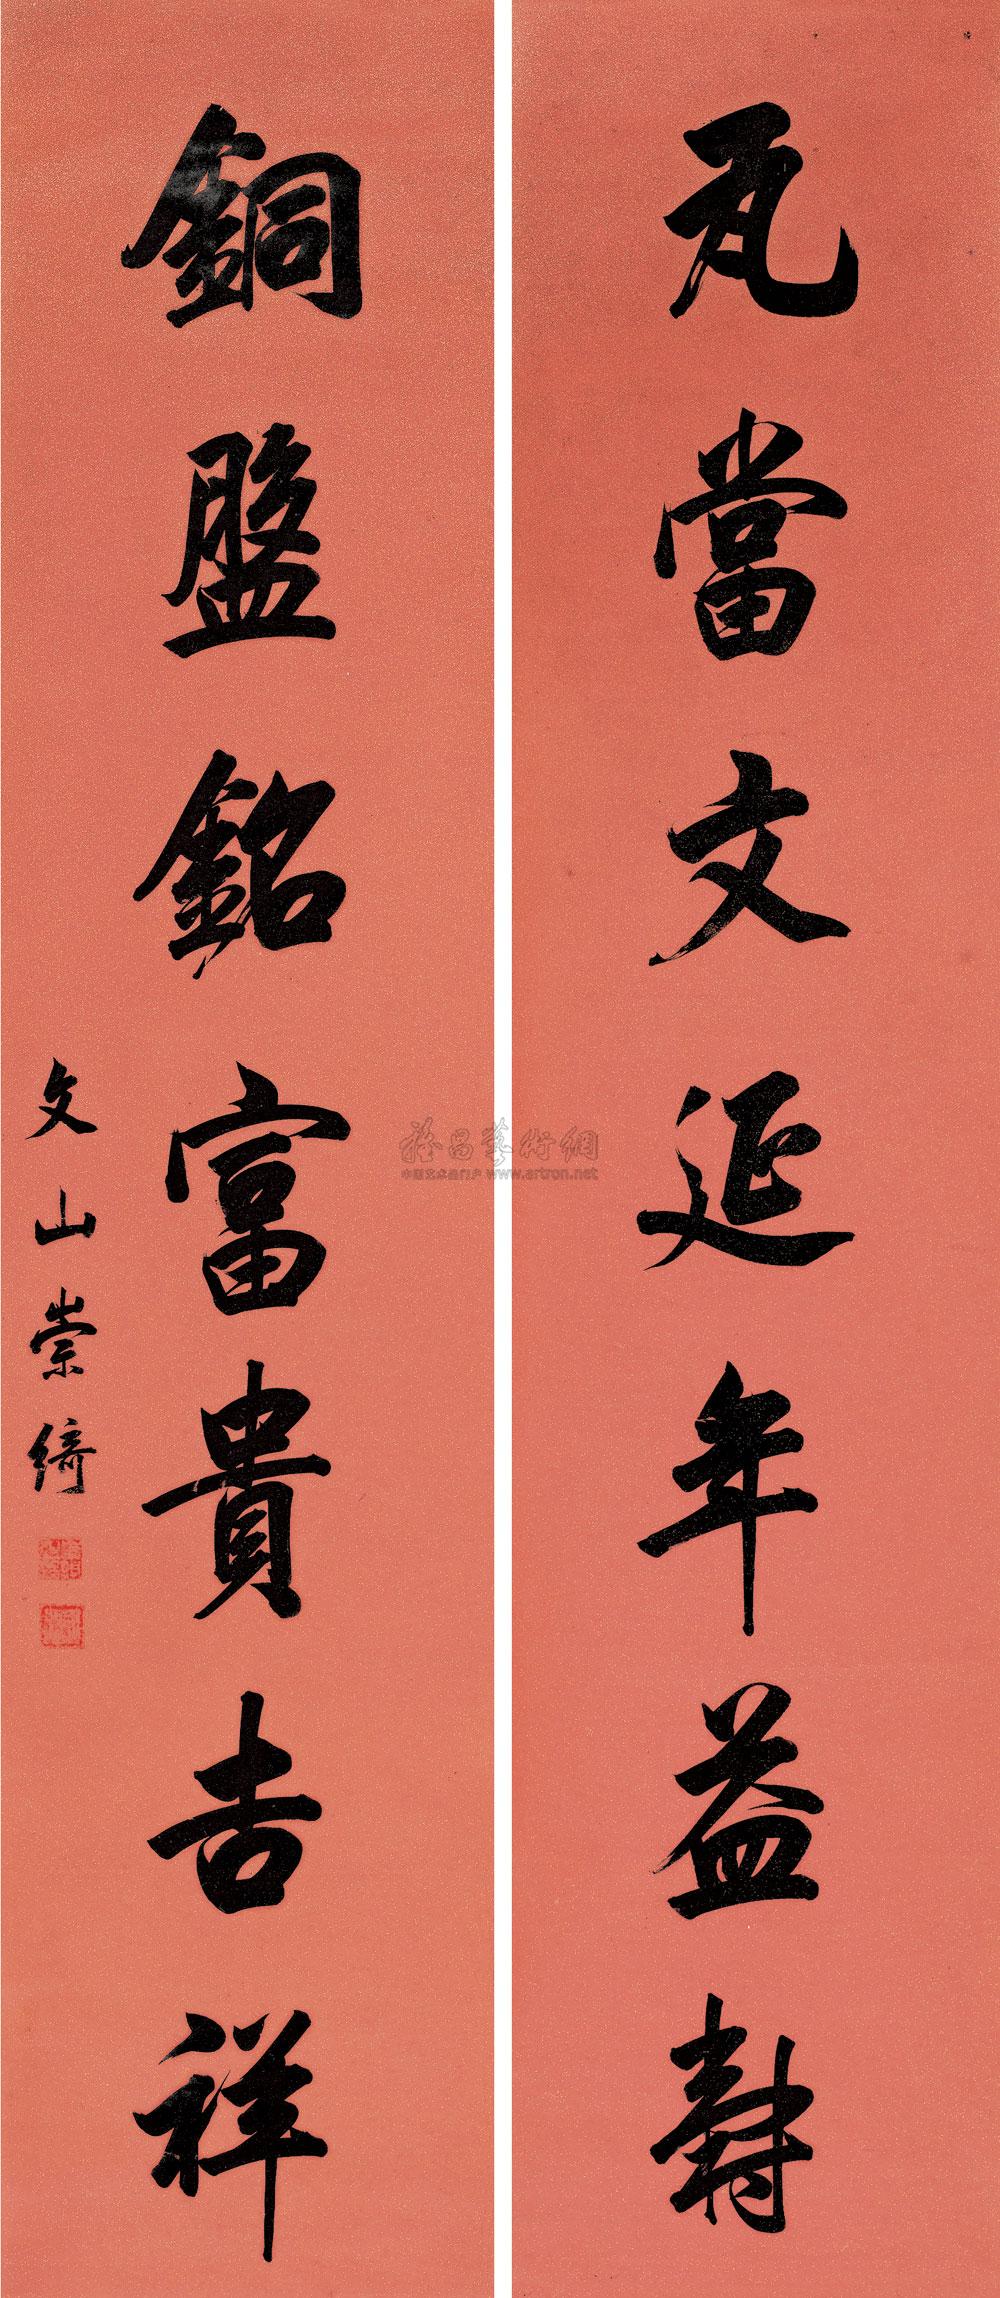 瓦當文延年益壽
銅盤銘富貴吉祥
文山崇綺
雅昌藝術網
中国艺术品门户 www.artron.net